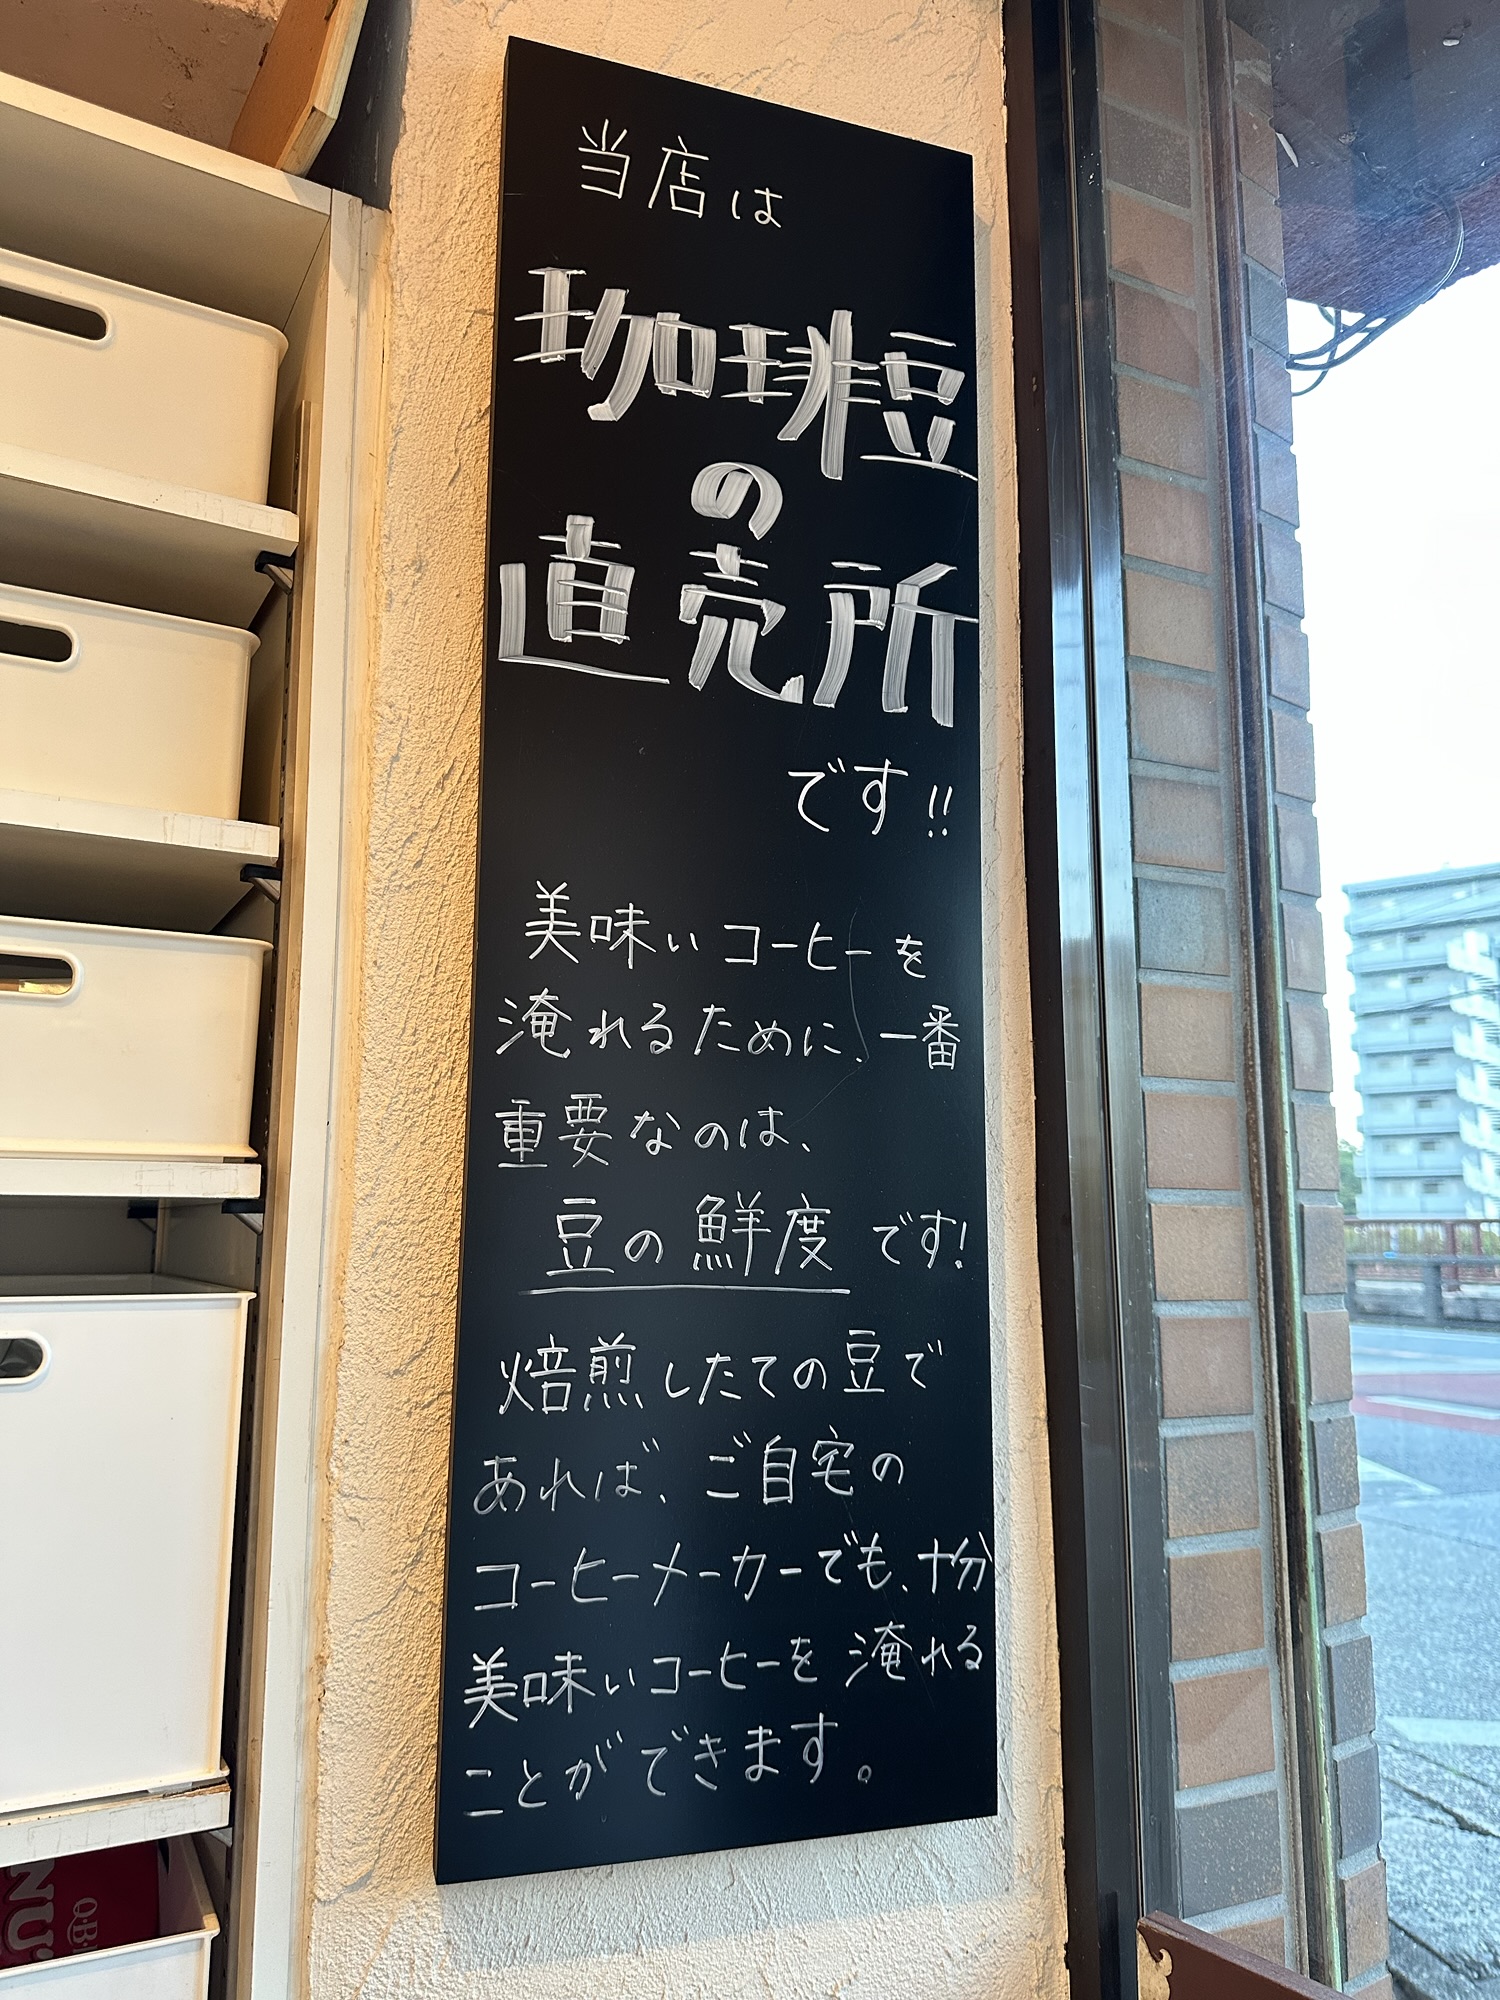 当店は
珈琲豆
の
直売所
です!!
美味いコーヒーを
淹れるために、一番
重要なのは、
豆の鮮度です!
焙煎したての豆で
あれば、ご自宅の
コーヒーメーカーでも、十分
美味いコーヒーを淹れる
ことができます。